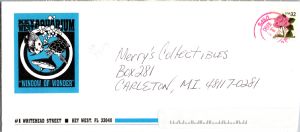 KEY WEST AQUARIUM
"WINDOW OF WONDER"
#1 WHITEHEAD STREET ■ KEY WEST, FL 33040
32
Merry's Collectibles
Box 281
CARLETON, MI. 48117-0281